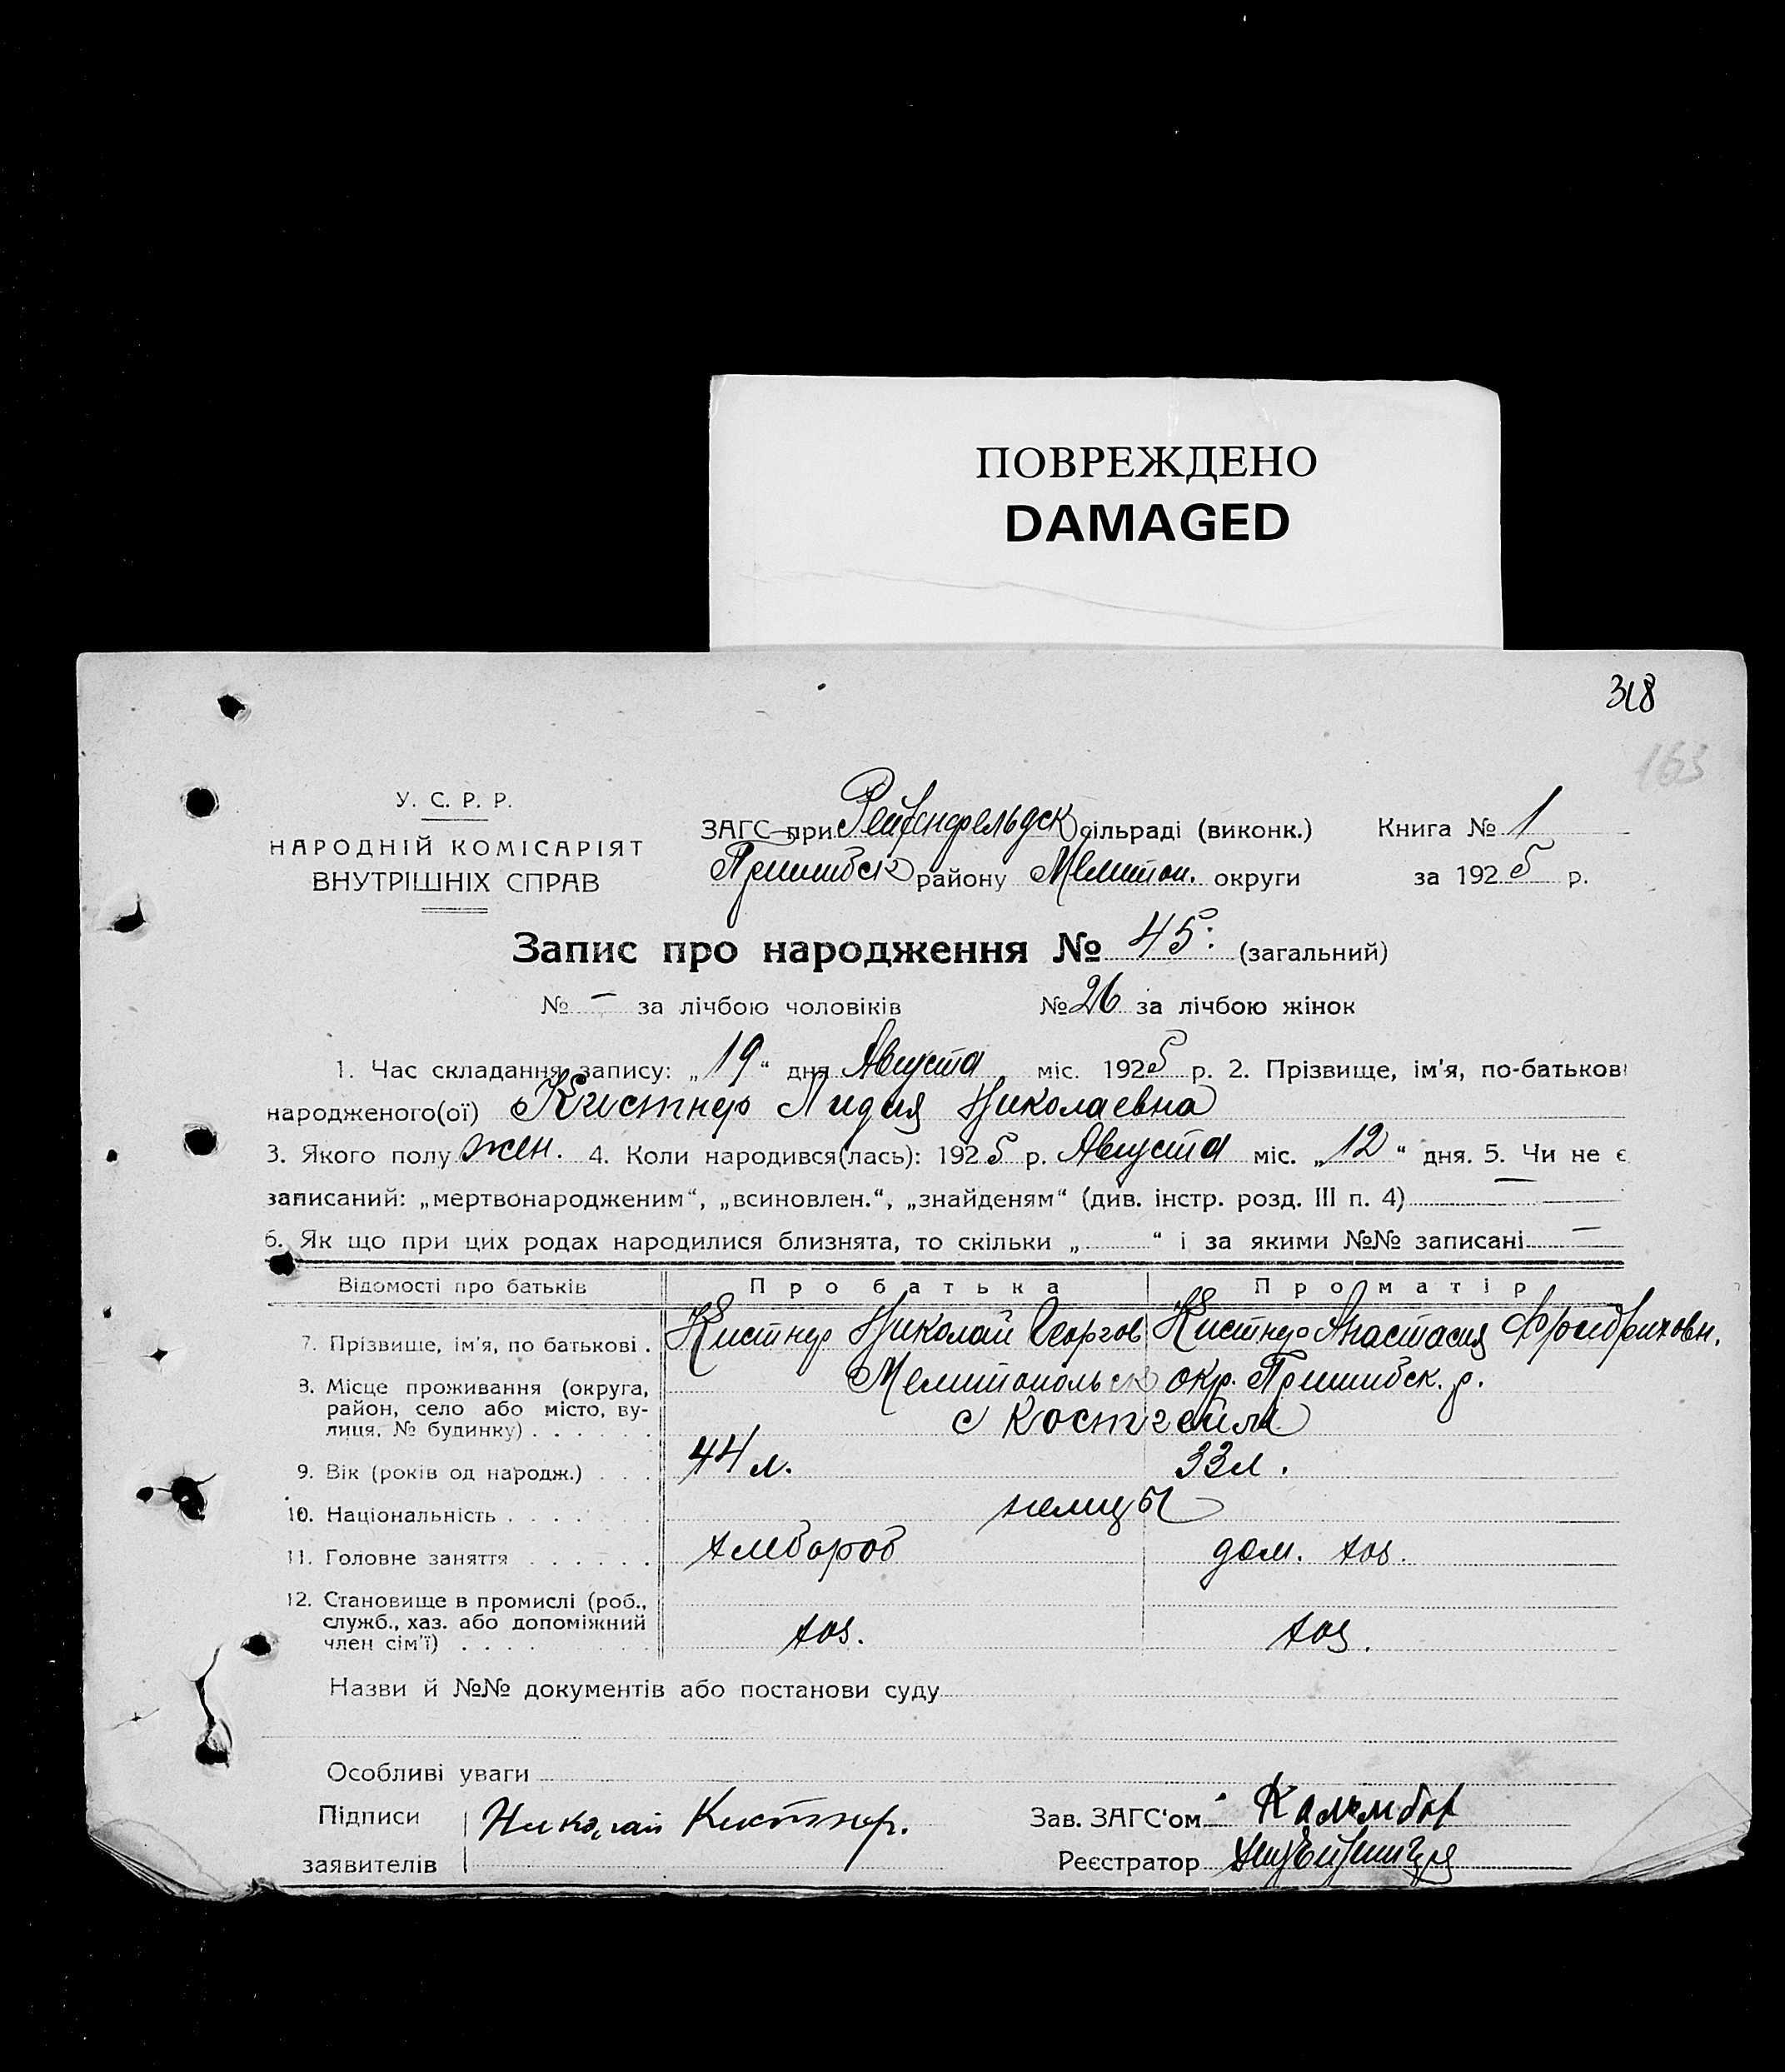 ПОВРЕЖДЕНО
DAMAGED
318
163
У. С. Р. Р.
НАРОДНІЙ КОМІСАРІЯТ
ВНУТРІШНІХ СПРАВ
ЗАГС при Рейхенфельдск сільраді (виконк.) Книга № 1
Пришибск району Мелитоп. округи за 1925 р.
Запис про народження № 45: (загальний)
№ – за лічбою чоловіків № 26 за лічбою жінок
1. Час складання запису: „19“ дня Августа міс. 1925 р. 2. Прізвище, ім'я, по-батькові
народженого(ої) Кистнер Лидия Николаевна
3. Якого полу жен. 4. Коли народився(лась): 1925 р. Августа міс. „12“ дня. 5. Чи не є
записаний: „мертвонародженим“, „всиновлен.“, „знайденям“ (див. інстр. розд. III п. 4) –
6. Як що при цих родах народилися близнята, то скільки „ “ і за якими №№ записані –
Відомості про батьків Про батька Про матір
7. Прізвище, ім'я, по батькові . Кистнер Николай Георгов Кистнер Анастасия Фридриховн.
8. Місце проживання (округа, район, село або місто, ву- лиця, № будинку) . . . . . . Мелитопольск окр. Пришибск. р.
с Костгейм
9. Вік (років од народж.) . . . 44 л. 33 л.
10. Національність . . . . . . . немцы
11. Головне заняття . . . . . . хлебороб дом. хоз.
12. Становище в промислі (роб., служб., хаз. або допоміжний член сім'ї) . . . . хоз. хоз.
Назви й №№ документів або постанови суду
Особливі уваги
Підписи Николай Кистнер. Зав. ЗАГС'ом
заявителів Реєстратор